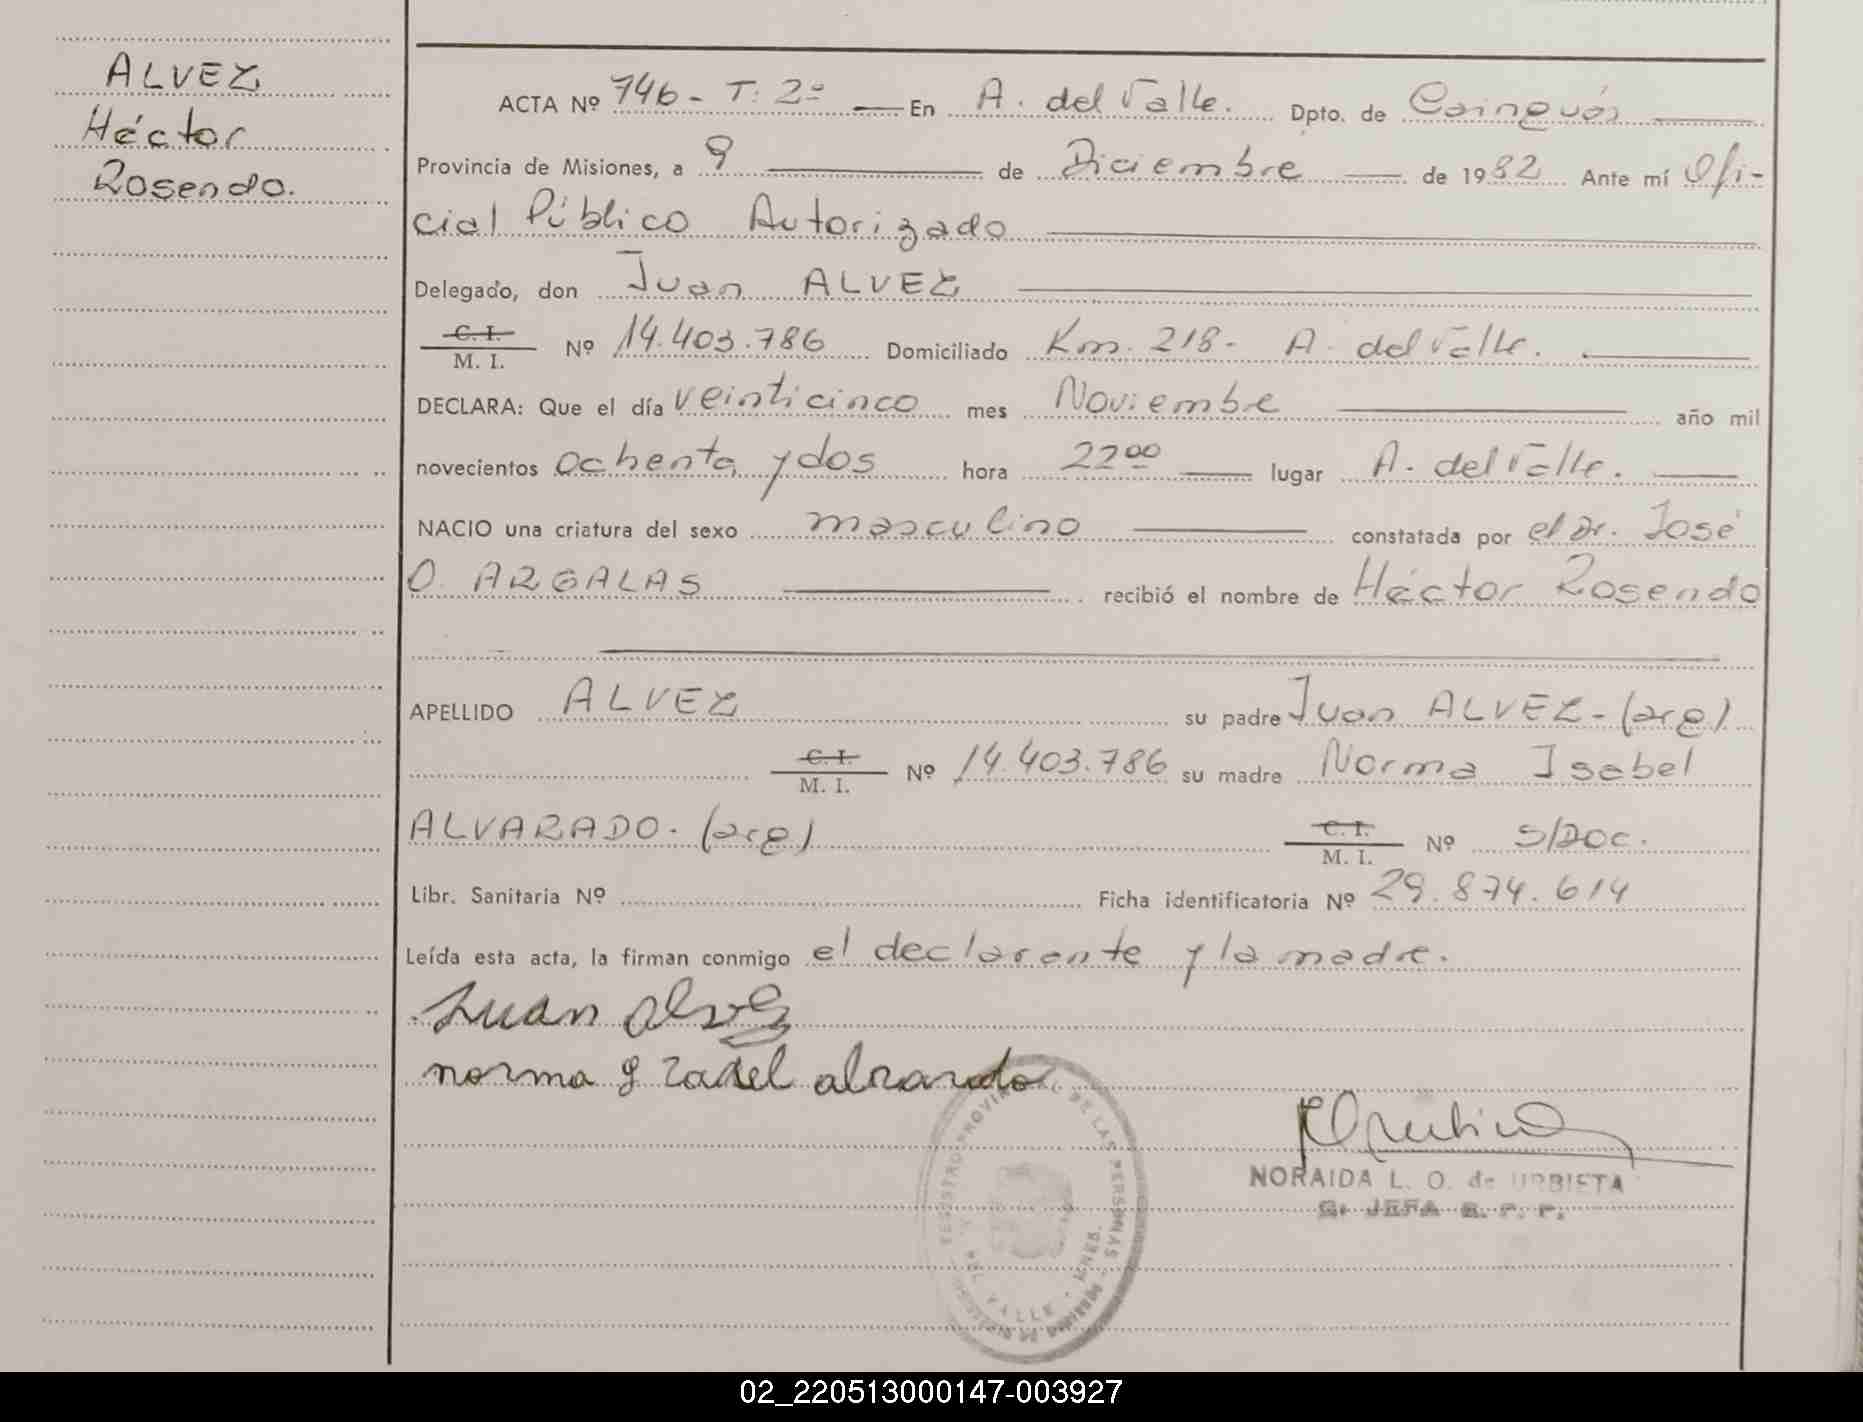 ALVEZ
Héctor
Rosendo.
ACTA Nº 746- T: 2º En A. del Valle. Dpto. de Cainguás
Provincia de Misiones, a 9 de Diciembre de 1982 Ante mí Ofi-
cial Público Autorizado
Delegado, don Juan ALVEZ
C. I.
M. I. Nº 14.403.786 Domiciliado Km. 218- A. del Valle.
DECLARA: Que el día veinticinco mes Noviembre año mil
novecientos ochenta y dos hora 22⁰⁰ lugar A. del Valle.
NACIO una criatura del sexo masculino constatada por el Dr. José
O. ARGALAS recibió el nombre de Héctor Rosendo
APELLIDO ALVEZ su padre Juan ALVEZ-(arg)
C. I.
M. I. Nº 14.403.786 su madre Norma Isabel
ALVARADO-(arg) C. I.
M. I. Nº S/DOC.
Libr. Sanitaria Nº Ficha identificatoria Nº 29.874.614
Leída esta acta, la firman conmigo el declarante y la madre.
Juan Alvez
norma y zabel alvarado
NORAIDA L. O. de URBIETA
JEFA R. P. P.
REGISTRO PROVINCIAL DE LAS PERSONAS
DEL VALLE - MNES.
02_220513000147-003927